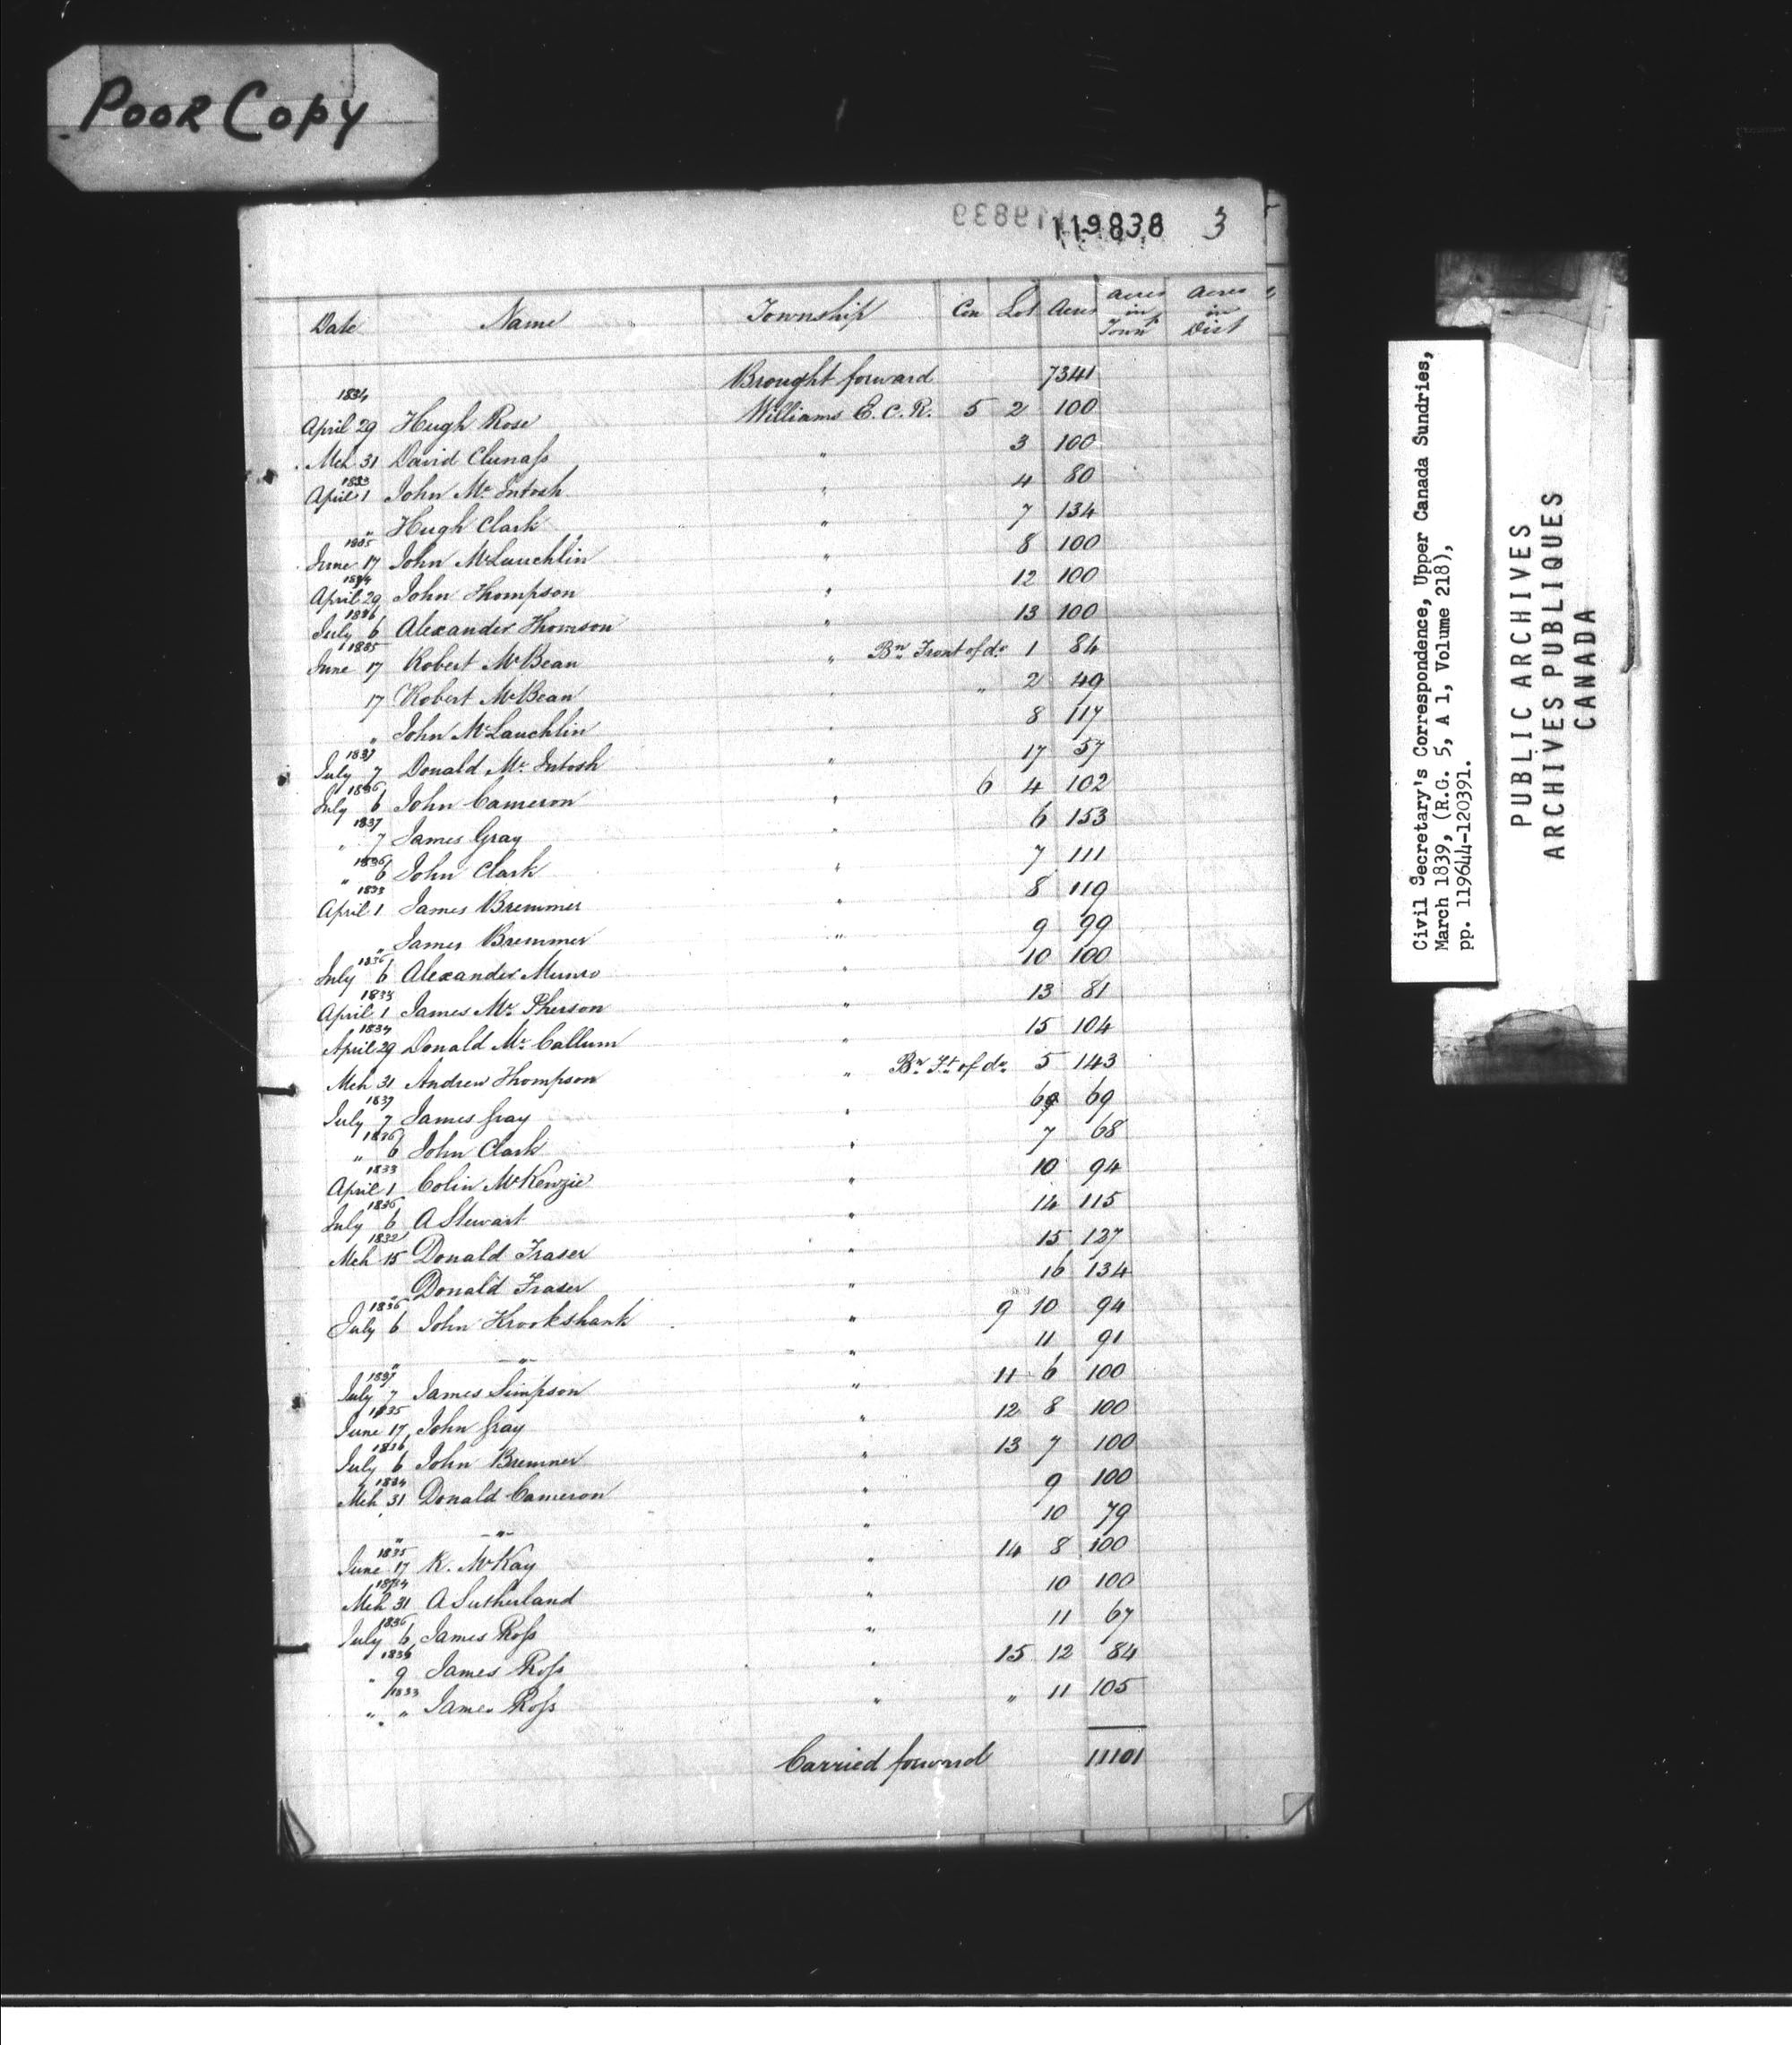 POOR COPY
119838 3
Date Name Township Con Lot Acres Acres in Townp Acres in Dist
Brought forward 7341
1834
April 29 Hugh Rose Williams E. C. R. 5 2 100
Mch 31 David Clunass " 3 100
1833
April 1 John McIntosh " 4 80
" Hugh Clark " 7 134
1835
June 17 John McLauchlin " 8 100
1834
April 29 John Thompson " 12 100
1836
July 6 Alexander Thomson " 13 100
1835
June 17 Robert McBean " Bn. Front of do 1 84
17 Robert McBean " " 2 49
" John McLauchlin " 8 117
1837
July 7 Donald McIntosh " 17 57
1836
July 6 John Cameron " 6 4 102
1837
" 7 James Gray " 6 153
1836
" 6 John Clark " 7 111
1833
April 1 James Bremmer " 8 119
" James Bremmer " 9 99
1836
July 6 Alexander Munro " 10 100
1833
April 1 James McPherson " 13 81
1834
April 29 Donald McCallum " 15 104
Mch 31 Andrew Thompson " Bn. Ft. of do 5 143
1837
July 7 James Gray " 6 69
1836
" 6 John Clark " 7 68
1833
April 1 Colin McKenzie " 10 94
1836
July 6 A Stewart " 14 115
1832
Mch 15 Donald Fraser " 15 127
" Donald Fraser " 16 134
1836
July 6 John Krookshank " 9 10 94
" " " 11 91
1837
July 7 James Simpson " 11 6 100
1835
June 17 John Gray " 12 8 100
1836
July 6 John Bremner " 13 7 100
1834
Mch 31 Donald Cameron " 9 100
" " " 10 79
1835
June 17 R. McKay " 14 8 100
1834
Mch 31 A Sutherland " 10 100
1836
July 6 James Ross " 11 67
" 9 James Ross " 15 12 84
1833
" " James Ross " " 11 105
Carried forward 11101
Civil Secretary's Correspondence, Upper Canada Sundries,
March 1839, (R.G. 5, A 1, Volume 218),
pp. 119644-120391.
PUBLIC ARCHIVES
ARCHIVES PUBLIQUES
CANADA